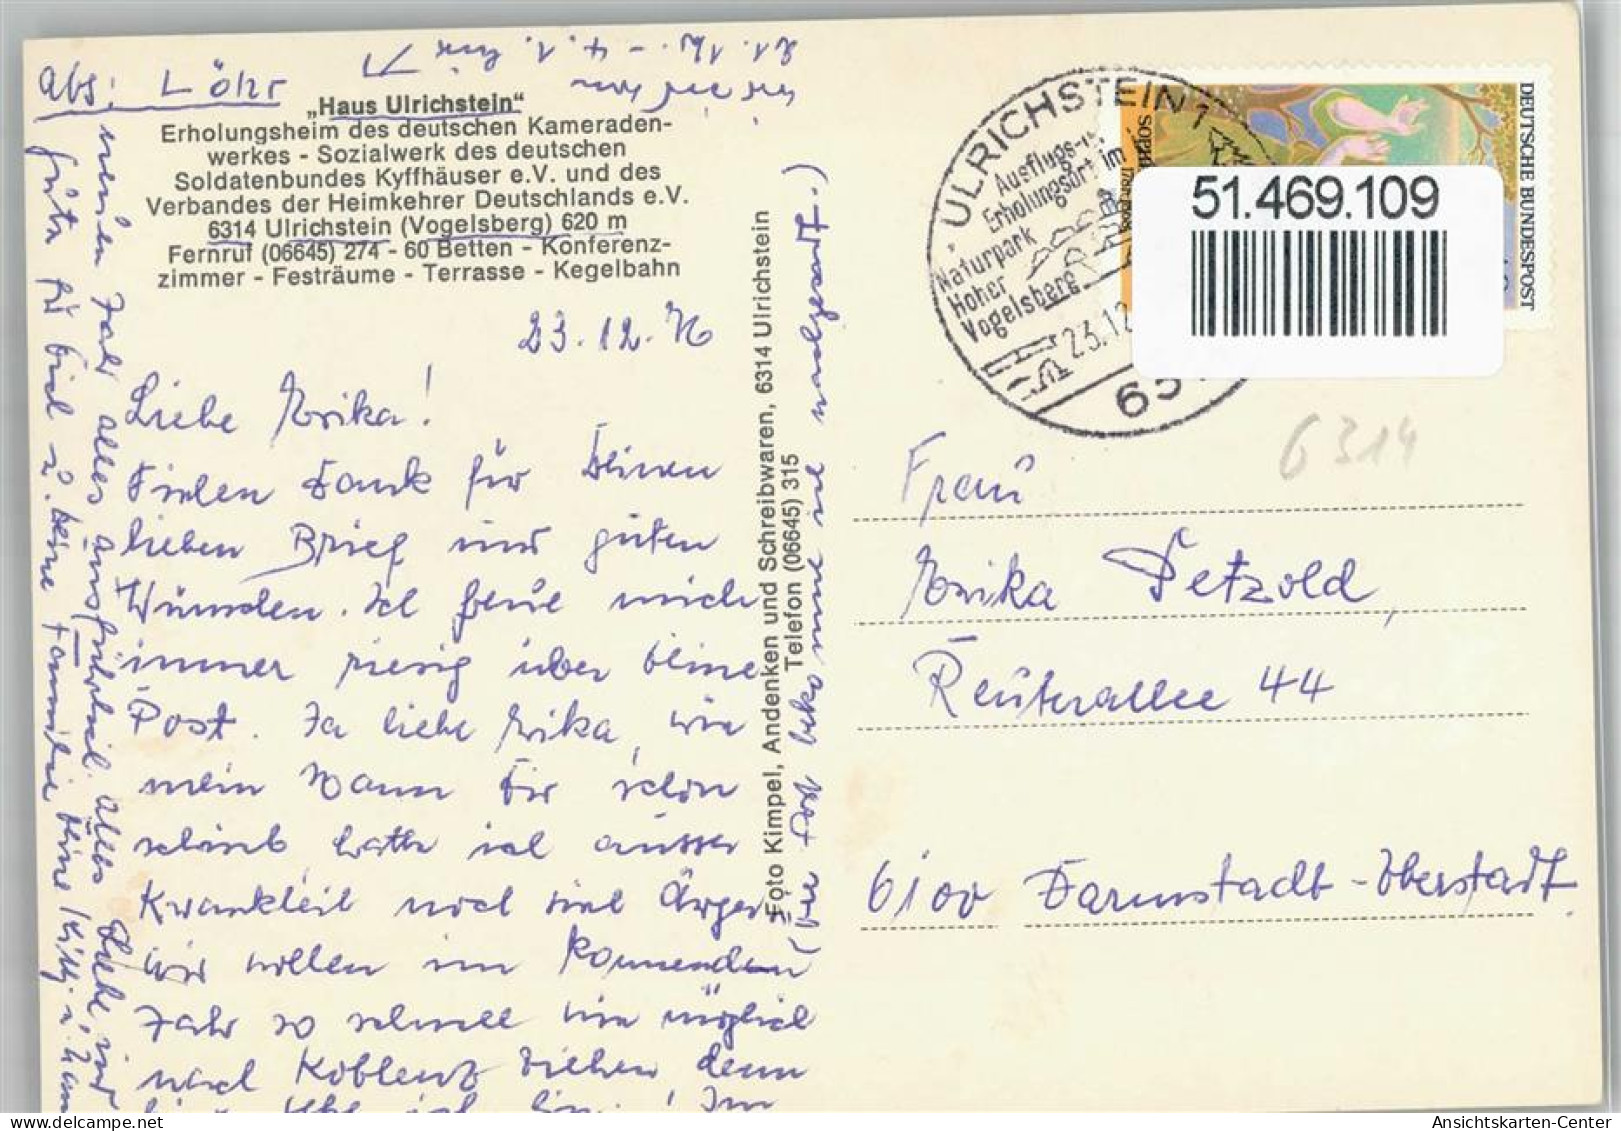 Abs: Löhr
„Haus Ulrichstein“
Erholungsheim des deutschen Kameraden-
werkes - Sozialwerk des deutschen
Soldatenbundes Kyffhäuser e.V. und des
Verbandes der Heimkehrer Deutschlands e.V.
6314 Ulrichstein (Vogelsberg) 620 m
Fernruf (06645) 274 - 60 Betten - Konferenz-
zimmer - Festräume - Terrasse - Kegelbahn
23.12.76
Liebe Erika!
Vielen Dank für Deinen
lieben Brief und guten
Wünschen. Ich freue mich
immer riesig über Deine
Post. Ja liebe Erika, wie
mein Mann Dir schon
schrieb hatte ich ausser
Krankheit noch viel Ärger
wir wollen im kommenden
Jahr so schnell wie möglich
nach Koblenz ziehen, denn
Im
neuen Jahr alles ausführlich. Alles Liebe und
Gute für Dich u. Deine Familie Deine
Foto Kimpel, Andenken und Schreibwaren, 6314 Ulrichstein
Telefon (06645) 315
ULRICHSTEIN 1
Ausflugs-
Erholungsort im
Naturpark
Hoher
Vogelsberg
23.12
DEUTSCHE BUNDESPOST
51.469.109
6314
Frau
Erika Petzold,
Reuterallee 44
6100 Darmstadt-Eberstadt.
Ansichtskarten-Center